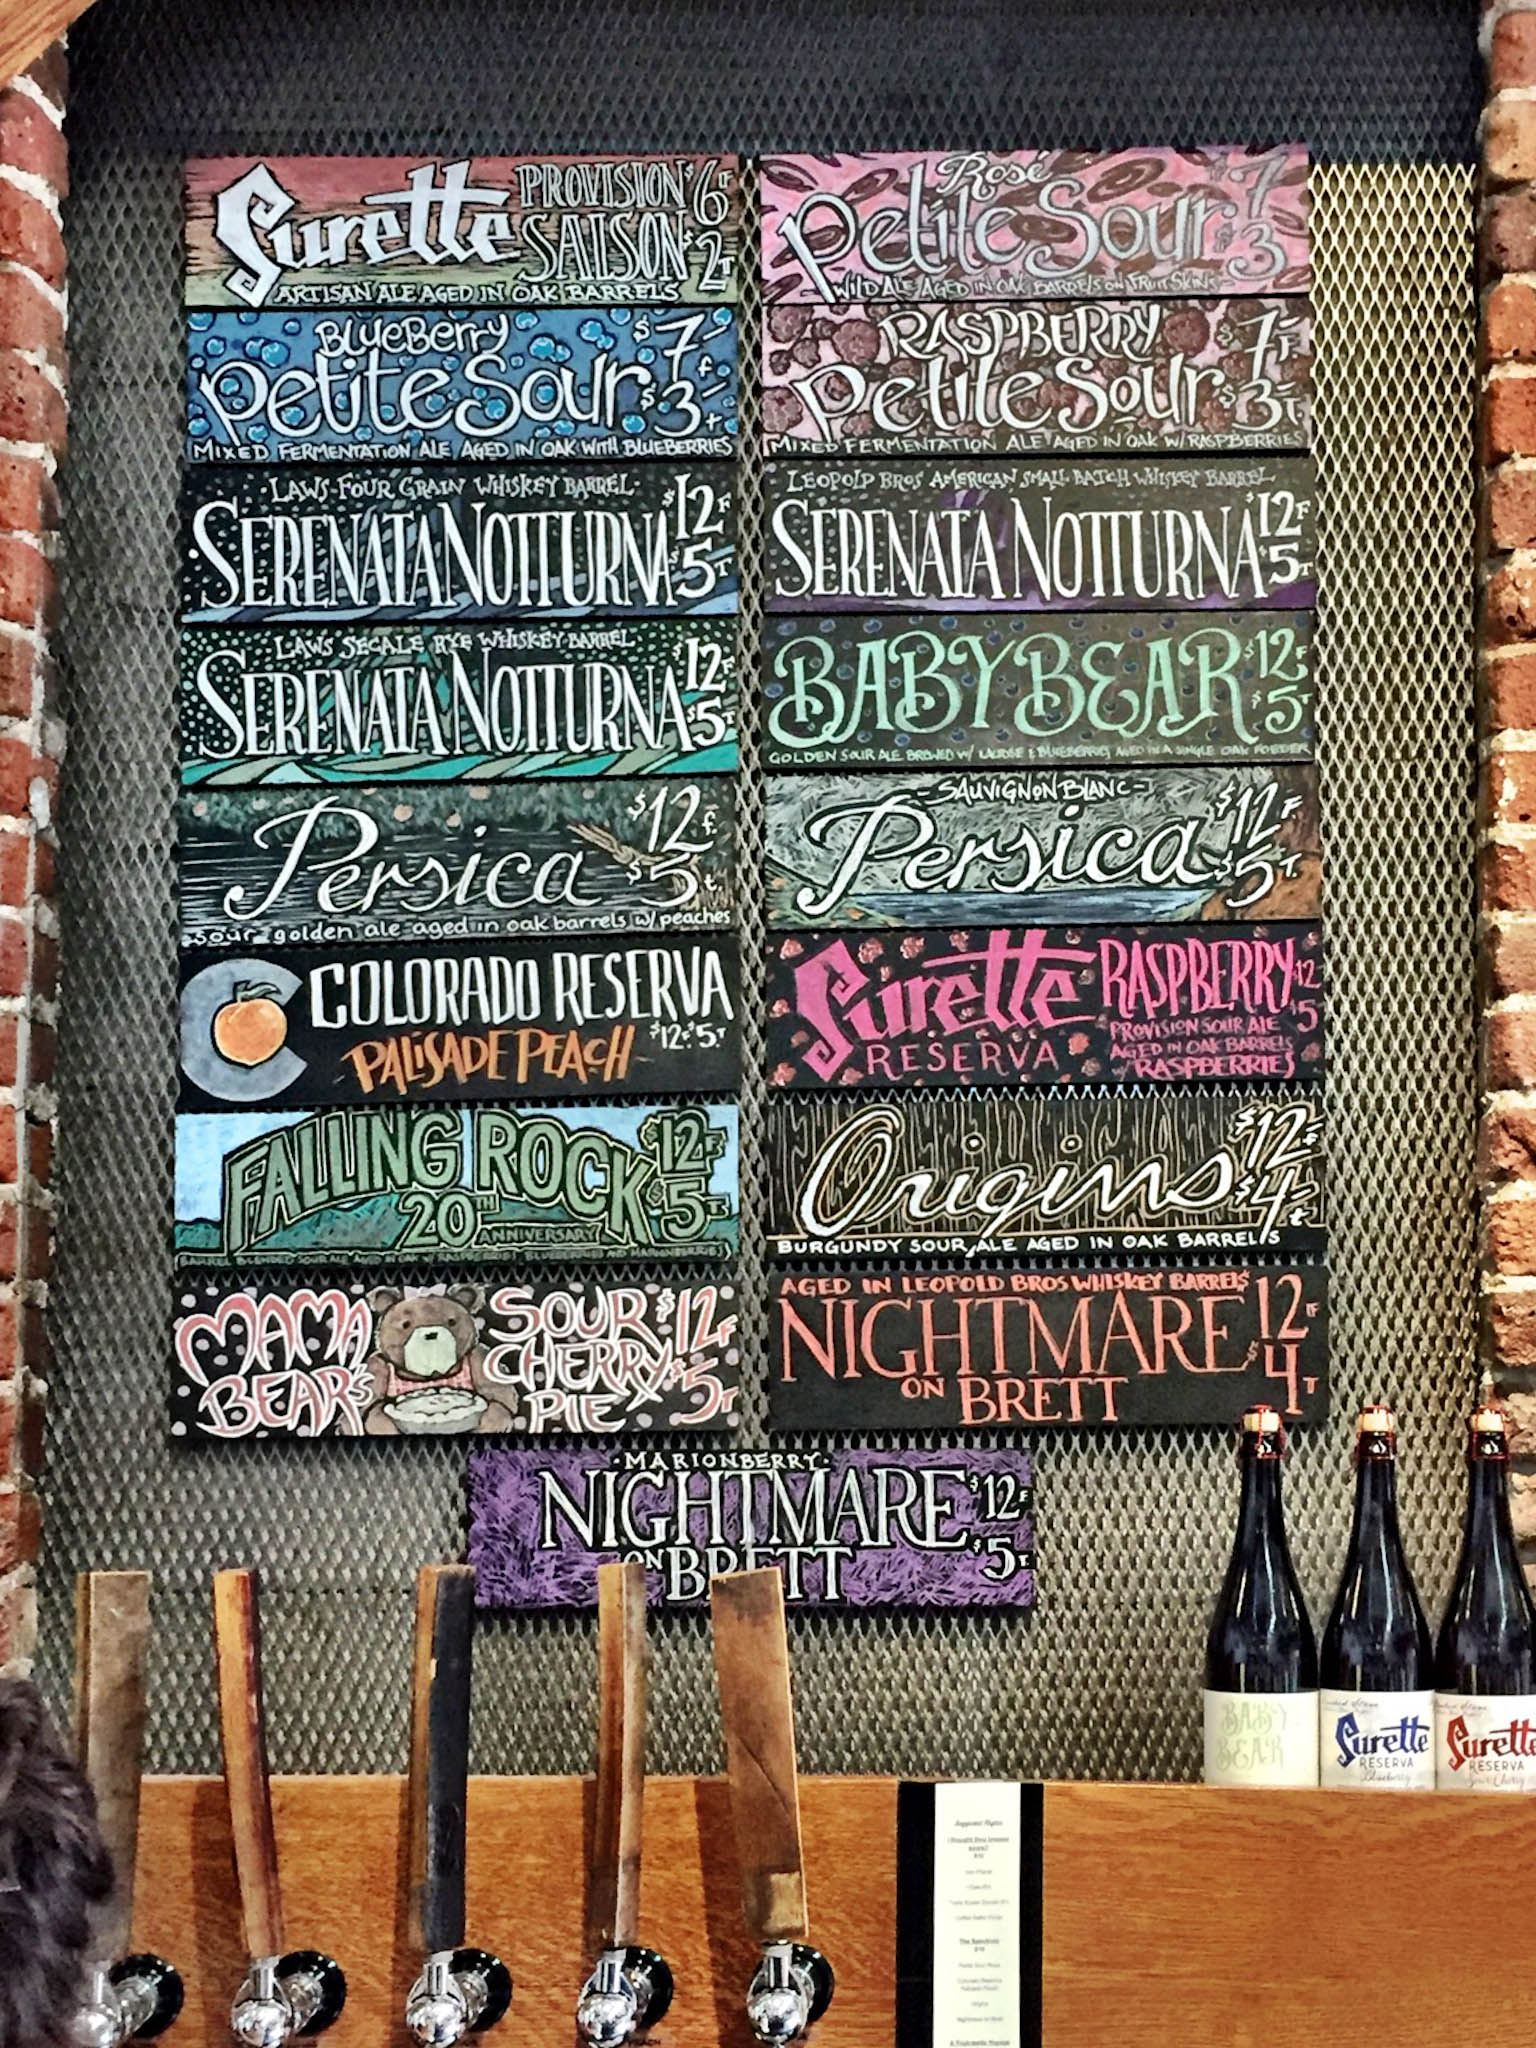 Surette PROVISION SAISON $6F $2T
ARTISAN ALE AGED IN OAK BARRELS
Rosé
Petite Sour $7 $3
WILD ALE AGED IN OAK BARRELS ON FRUIT SKINS
BLUEBERRY
Petite Sour $7F $3T
MIXED FERMENTATION ALE AGED IN OAK WITH BLUEBERRIES
RASPBERRY
Petite Sour $7F $3T
MIXED FERMENTATION ALE AGED IN OAK W/ RASPBERRIES
LAWS FOUR GRAIN WHISKEY BARREL
SERENATA NOTTURNA $12F $5T
LEOPOLD BROS AMERICAN SMALL BATCH WHISKEY BARREL
SERENATA NOTTURNA $12F $5T
LAWS SECALE RYE WHISKEY BARREL
SERENATA NOTTURNA $12F $5T
BABY BEAR $12F $5T
GOLDEN SOUR ALE BREWED W/ LACTOSE & BLUEBERRIES AGED IN A SINGLE OAK FOEDER
Persica $12f. $5t.
sour golden ale aged in oak barrels w/ peaches
-SAUVIGNON BLANC-
Persica $12F $5T.
COLORADO RESERVA
PALISADE PEACH $12F. $5.T
Surette RASPBERRY $12 $5
RESERVA
PROVISION SOUR ALE
AGED IN OAK BARRELS
W/RASPBERRIES
FALLING ROCK $12F $5T
20TH ANNIVERSARY
BARREL BLENDED SOUR ALE AGED IN OAK W/ RASPBERRIES, BLUEBERRIES AND MARIONBERRIES
Origins $12F $4t
BURGUNDY SOUR ALE AGED IN OAK BARRELS
MAMA BEAR'S
SOUR CHERRY PIE $12F $5T
AGED IN LEOPOLD BROS WHISKEY BARRELS
NIGHTMARE $12F
ON BRETT $4T
·MARIONBERRY·
NIGHTMARE $12F
ON BRETT $5T
BABY
BEAR
Surette
RESERVA
Blueberry
Surette
RESERVA
Sour Cherry